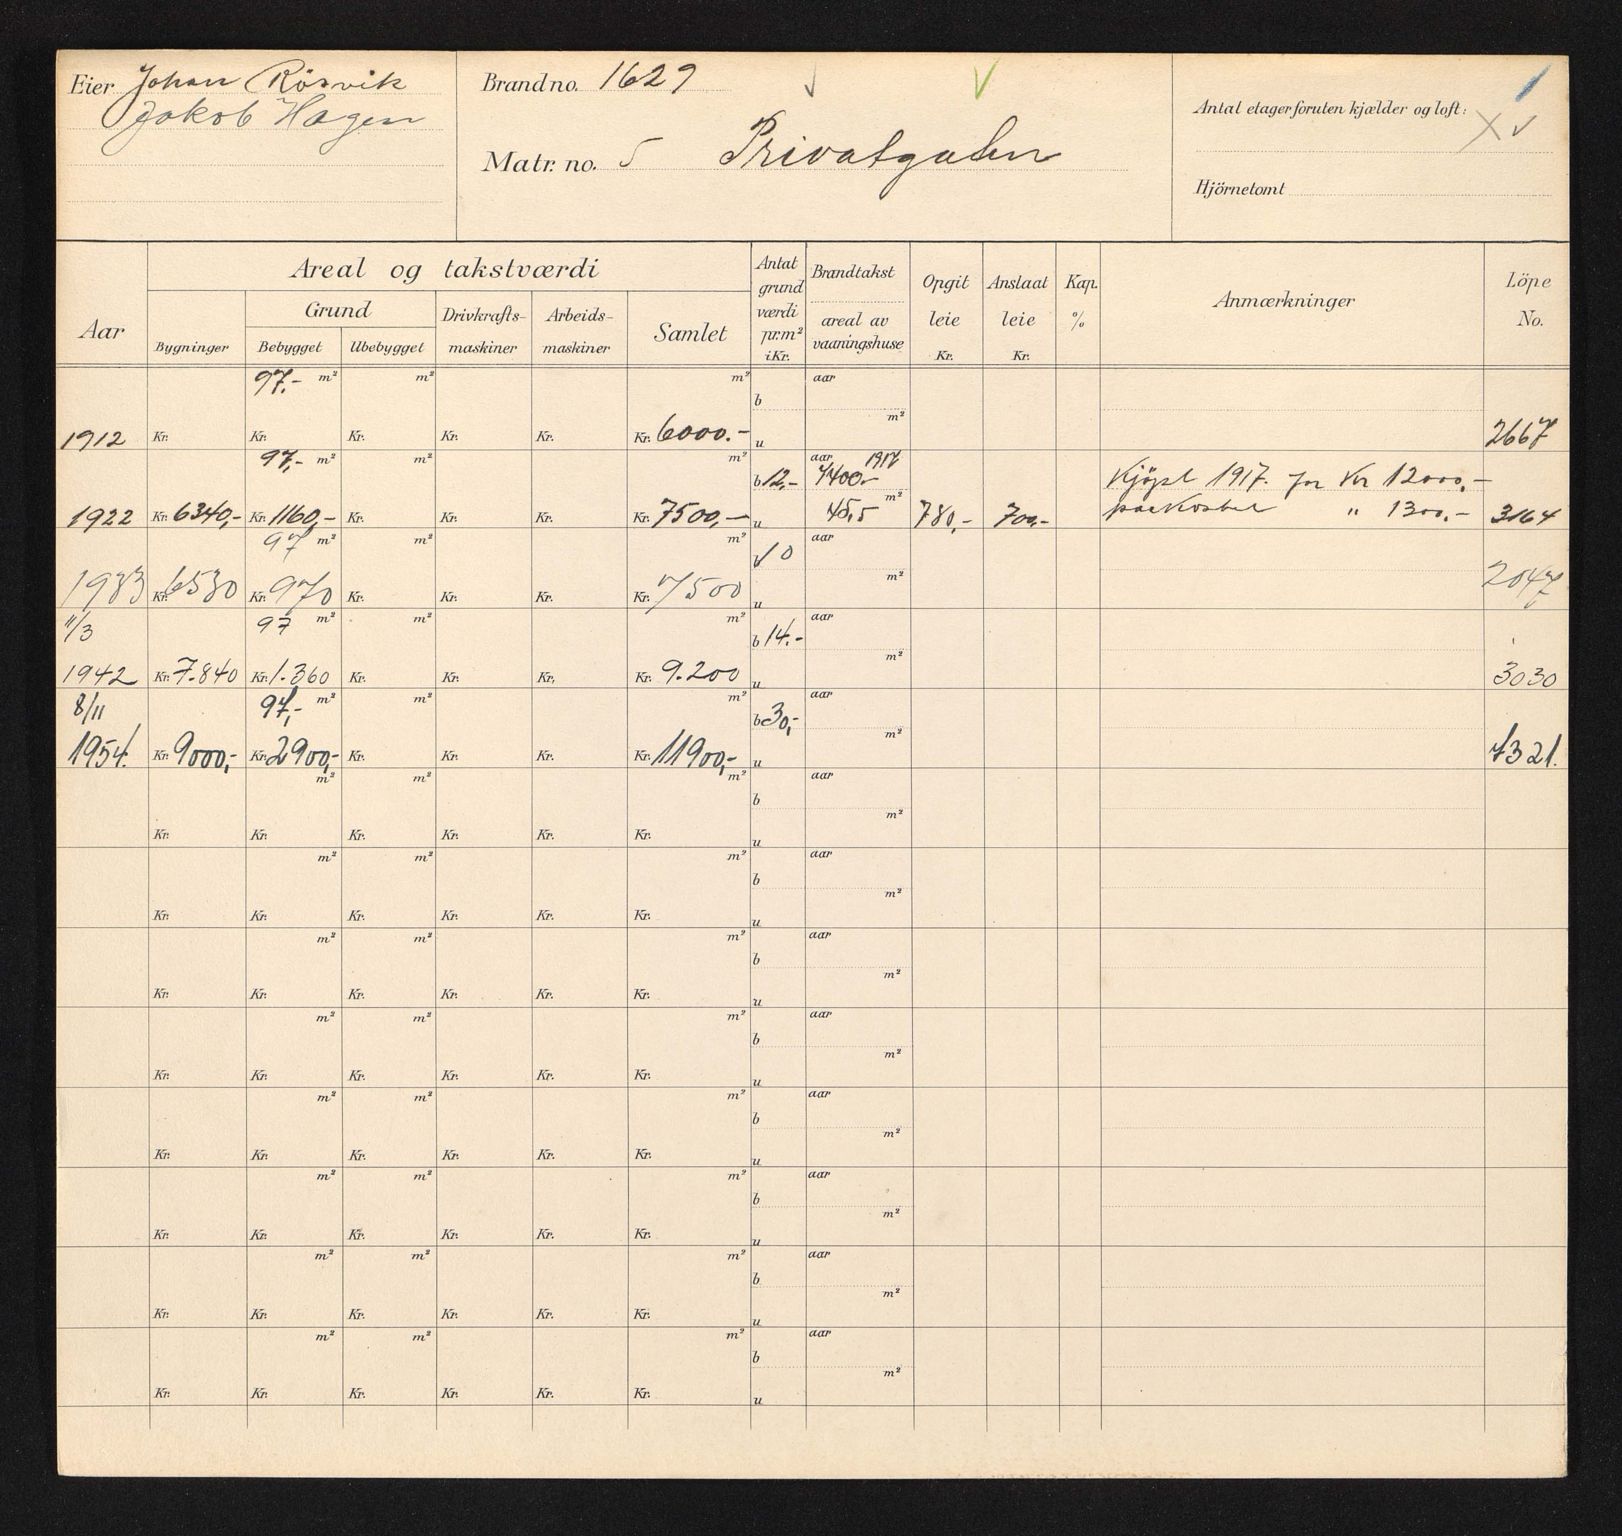 Eier Johan Rösvik
Jakob Hagen
Brandno. 1629
Matr. no. 5 Privatgaten
Antal etager foruten kjælder og loft:
Hjörnetomt
Areal og takstværdi
Aar
Bygninger
Grund
Bebygget
Ubebygget
Drivkrafts-
maskiner
Arbeids-
maskiner
Samlet
Antat
grund
værdi
pr. m²
i Kr.
Brandtakst
areal av
vaaningshuse
Opgit
leie
Kr.
Anslaat
leie
Kr.
Kap.
%
Anmærkninger
Löpe
No.
97.- m² m² m² b aar m²
1912 Kr. Kr. Kr. Kr. Kr. Kr. 6000.- u 2667
97,- m² m² m² b 12,- aar 1917 7400.- m² Kjöpt 1917. for Kr 12000,-
1922 Kr. 6340,- Kr. 1160,- Kr. Kr. Kr. Kr. 7500,- u 45,5 780,- 700,- paakostet " 1300,- 3164
97 m² m² m² 10 aar m²
1933 Kr. 6530 Kr. 970 Kr. Kr. Kr. Kr. 7500 u 2047
11/3 97 m² m² m² b 14.- aar m²
1942 Kr. 7.840 Kr. 1.360 Kr. Kr. Kr. Kr. 9.200 u 3030
8/11 97,- m² m² m² b 30,- aar m²
1954. Kr. 9000,- Kr. 2900,- Kr. Kr. Kr. Kr. 11900,- u 4321.
m² m² m² b aar m²
Kr. Kr. Kr. Kr. Kr. Kr. u
m² m² m² b aar m²
Kr. Kr. Kr. Kr. Kr. Kr. u
m² m² m² b aar m²
Kr. Kr. Kr. Kr. Kr. Kr. u
m² m² m² b aar m²
Kr. Kr. Kr. Kr. Kr. Kr. u
m² m² m² b aar m²
Kr. Kr. Kr. Kr. Kr. Kr. u
m² m² m² b aar m²
Kr. Kr. Kr. Kr. Kr. Kr. u
m² m² m² b aar m²
Kr. Kr. Kr. Kr. Kr. Kr. u
m² m² m² b aar m²
Kr. Kr. Kr. Kr. Kr. Kr. u